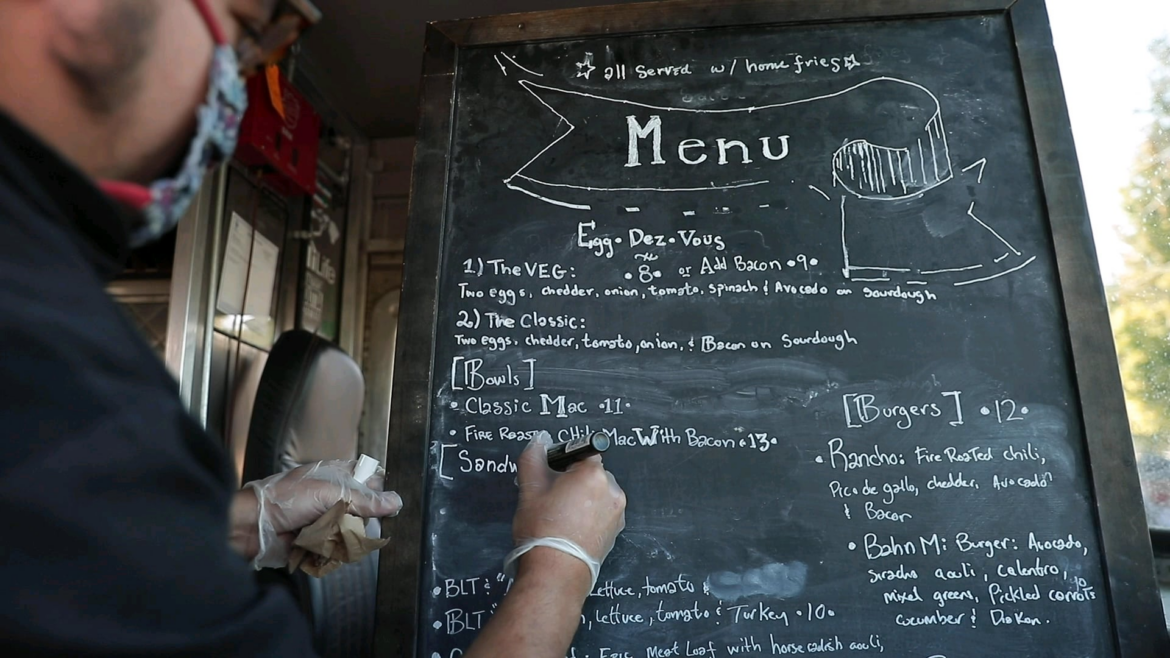 all served w/ home fries
Menu
Egg. Dez. Vous
1) The VEG: .8. or Add Bacon .9.
Two eggs, chedder, onion, tomato, spinach & Avocado on sourdough
2) The Classic:
Two eggs, chedder, tomato, onion, & Bacon on Sourdough
[Bowls]
• Classic Mac .11.
• Fire Roasted Chili Mac With Bacon .13.
[Sandw
[Burgers] .12.
• Rancho: Fire Roasted chili,
Pico de gallo, chedder, Avocado
& Bacon
• Bahn Mi Burger: Avocado,
siracha aouli, Calentro,
mixed greens, Pickled carrots
cucumber & Diakon.
• BLT & lettuce, tomato &
• BLT lettuce, tomato & Turkey .10.
Meat Loaf with horseradish aouli,